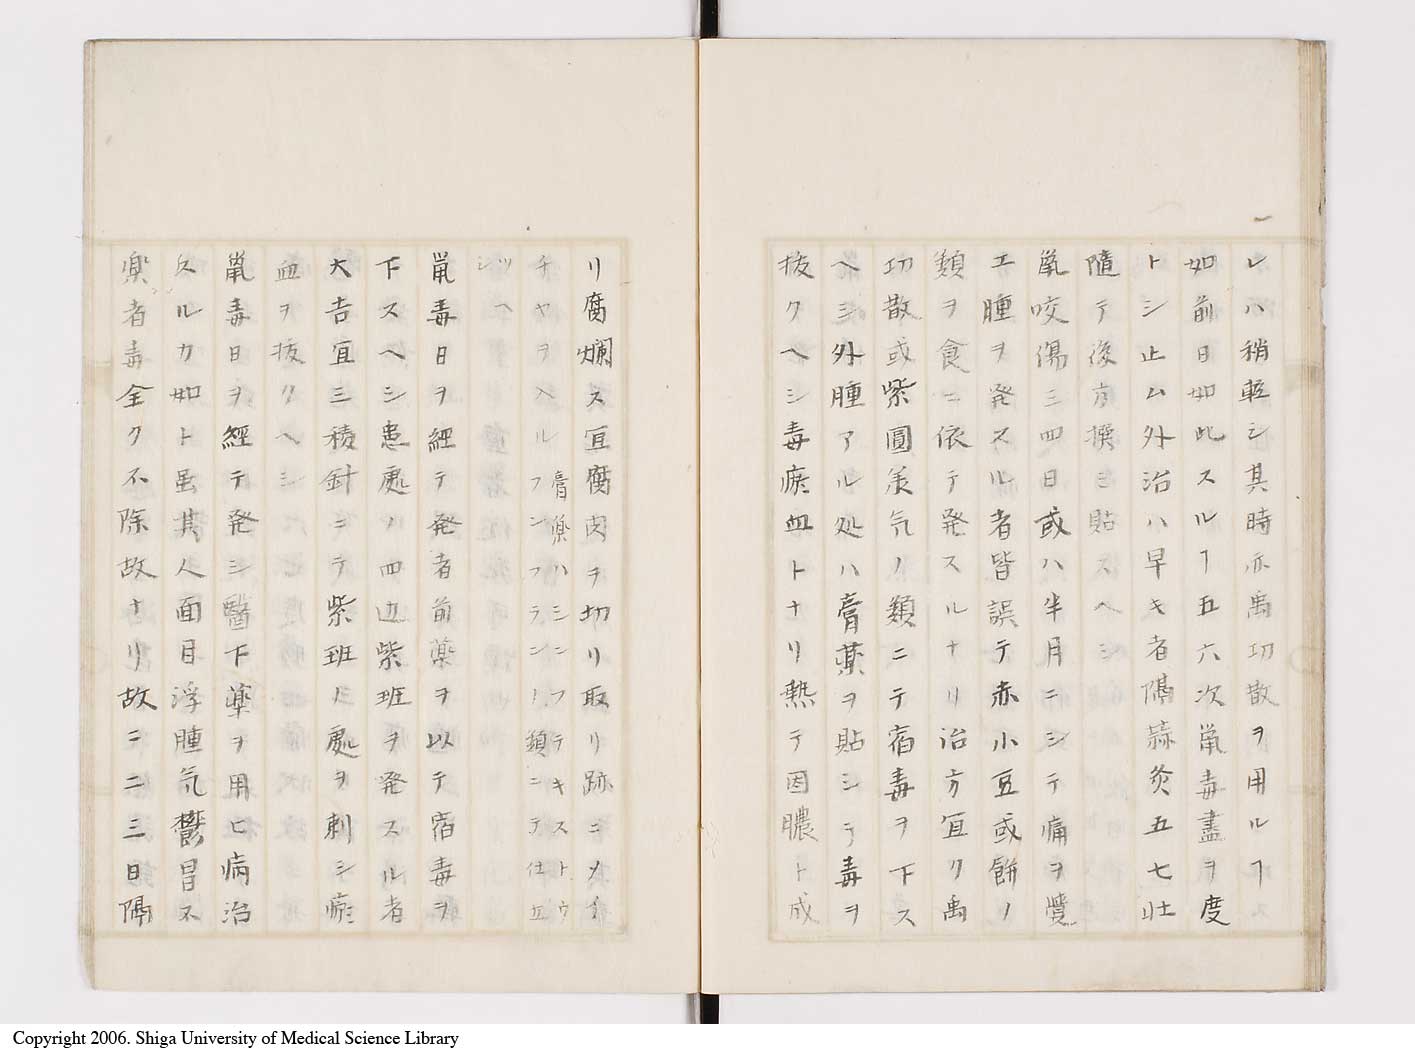 レハ稍軽シ其時亦禹功散ヲ用ルヿ
如前日如此スルヿ五六次鼠毒盡ヲ度
トシ止ム外治ハ早キ者隔蒜灸五七壮
隨テ後方撰ミ貼スヘシ
鼠咬傷三四日或ハ半月ニシテ痛ヲ覺
エ腫ヲ発スル者皆誤テ赤小豆或餅ノ
類ヲ食ニ依テ発スルナリ治方宜ク禹
功散或紫圓羔気ノ類ニテ宿毒ヲ下ス
ヘシ外腫アル処ハ膏薬ヲ貼シテ毒ヲ
抜クヘシ毒瘀血トナリ熱テ因膿ト成
リ腐爛ス宜腐肉ヲ切リ取リ跡ニメイ
チヤヲ入ル
膏藥ハシンフテキストウ
フンフラシノ類ニテ仕立
ツヘシ
鼠毒日ヲ經テ発者前薬ヲ以テ宿毒ヲ
下スヘシ患處ノ四辺紫班ヲ発スル者
大吉宜三稜針ニテ紫班ノ處ヲ刺シ瘀
血ヲ抜クヘシ
鼠毒日ヲ經テ発シ醫下薬ヲ用ヒ病治
スルカ如ト虽其人面目浮腫気鬱冒不
楽者毒全ク不除故ナリ故ニ二三日隔
Copyright 2006. Shiga University of Medical Science Library